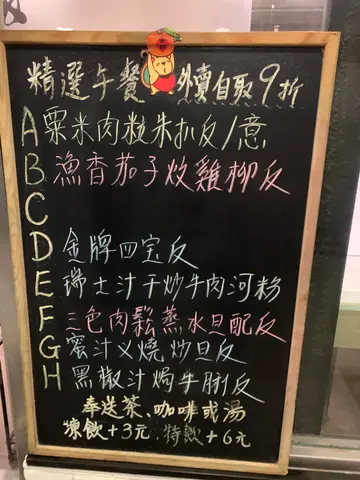 精選午餐 外賣自取9折
A 粟米肉粒朱扒反/意
B 漁香茄子炆雞柳反
C
D 金牌四宝反
E 瑞士汁干炒牛肉河粉
F 三色肉鬆蒸水旦配反
G 蜜汁义燒炒旦反
H 黑椒汁焗牛脷反
奉送茶、咖啡或湯
凍飲+3元 特飲+6元